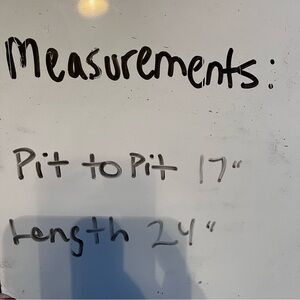 Measurements:
Pit to Pit 17"
Length 24"